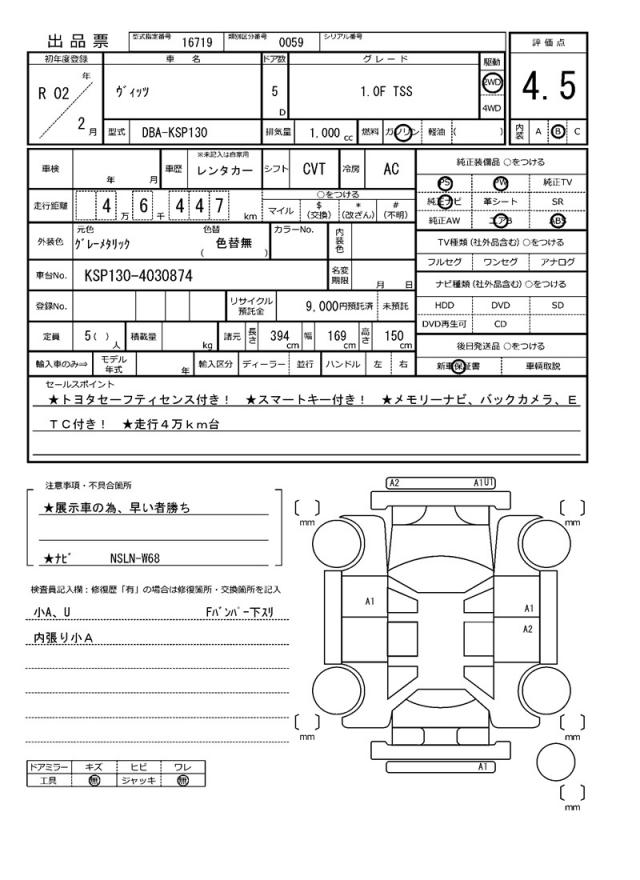 出品票 型式指定番号 16719 類別区分番号 0059 シリアル番号
初年度登録 車名 ドア数 グレード 駆動 評価点
R 02 年 ヴィッツ 5 D 1.0F TSS 2WD 4.5
4WD
2 月 型式 DBA-KSP130 排気量 1.000 cc 燃料 ガソリン 軽油 ( ) 内装 A B C
車検 年 月 車歴 ※未記入は自家用 レンタカー シフト CVT 冷房 AC 純正装備品 ○をつける
PS PW 純正TV
走行距離 4 万 6 千 4 4 7 km ○をつける 純正ナビ 革シート SR
マイル $ (交換) * (改ざん) # (不明) 純正AW エアB ABS
外装色 元色 グレーメタリック 色替 ( 色替無 ) カラーNo. 内装色 TV種類 (社外品含む) ○をつける
フルセグ ワンセグ アナログ
車台No. KSP130-4030874 名変期限 月 日 ナビ種類 (社外品含む) ○をつける
登録No. リサイクル預託金 9,000円預託済 未預託 HDD DVD SD
DVD再生可 CD
定員 5( ) 人 積載量 kg 諸元 長さ 394 cm 幅 169 cm 高さ 150 cm 後日発送品 ○をつける
輸入車のみ⇒ モデル年式 年 輸入区分 ディーラー 並行 ハンドル 左 右 新車保証書 車輌取説
セールスポイント
★トヨタセーフティセンス付き! ★スマートキー付き! ★メモリーナビ、バックカメラ、E
TC付き! ★走行4万km台
注意事項・不具合箇所
★展示車の為、早い者勝ち
★ナビ NSLN-W68
検査員記入欄:修復歴「有」の場合は修復箇所・交換箇所を記入
小A、U Fバンパー下スリ
内張り小A
ドアミラー キズ ヒビ ワレ
工具 無 ジャッキ 無
A2 A1U1
[ ] mm [ ] mm
A1 A1
A2
[ ] mm [ ] mm
A1
[ ] mm